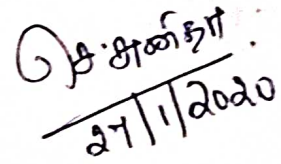 செ.அனிதா.
27/1/2020